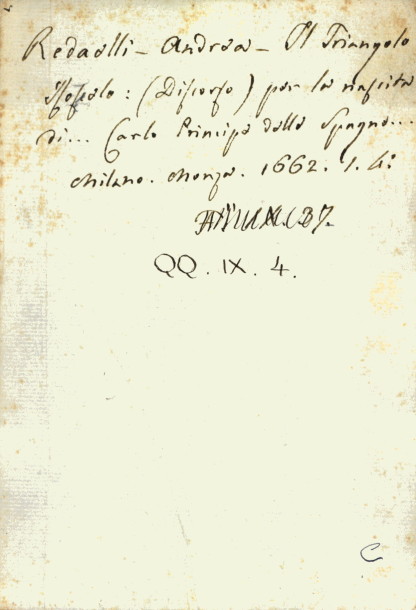 Redaelli - Andrea - Il Triangolo
Isoscele : (Discorso) per la nascita
di... Carlo Principe delle Spagne...
Milano. Monza. 1662. 1. 4:
QQ. IX. 4.
C